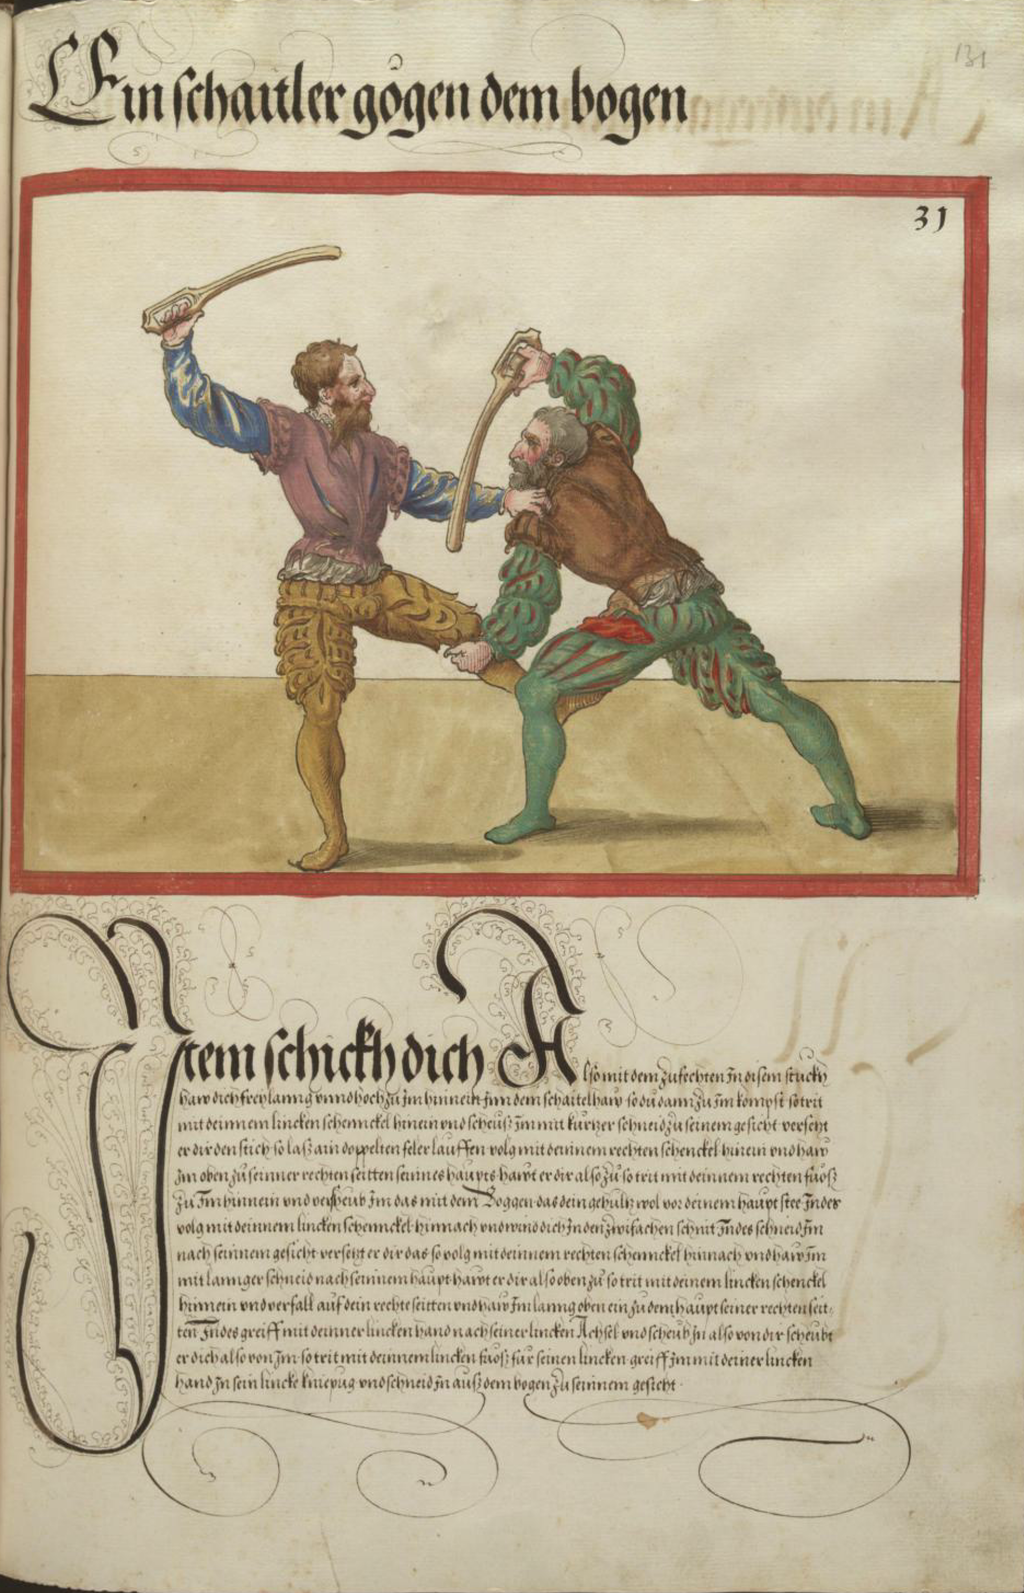 131
Ein schaitler gögen dem bogen
31
Item schickh dich Also mit dem zufechten In disem stuckh
haw dich frey lanng vnnd hoch zu Im hinnein Inn dem schaitelhaw so du dann zu Im kompst so trit
mit deinnem lincken schennckel hinein vnd scheuß Im mit kurtzer schneid zu seinem gesicht versetzt
er dir den stich so laß ain doppelten feler lauffen volg mit deinnem rechten schenckel hinein vnd haw
Im oben zu seinner rechten seitten seinnes haupts hawt er dir also zu so trit mit deinnem rechten fuoß
zu Im hinnein vnd verscheub Im das mit dem Doggen das dein gehultz wol vor deinem haupt stee Indes
volg mit deinnem lincken schennckel hinnach vnd wind dich In den zwifachen schnit Indes schneid Im
nach seinnem gesicht versetzt er dir das so volg mit deinnem rechten schennckel hinnach vnd haw Im
mit lannger schneid nach seinnem haupt hawt er dir also oben zu so trit mit deinem lincken schenckel
hinnein vnd verfall auf dein rechte seitten vnd haw Im lanng oben ein zu dem haupt seiner rechten seit-
ten Indes greiff mit deinner lincken hand nach seiner lincken Achsel vnd scheub In also von dir scheubt
er dich also von Im so trit mit deinnem lincken fuoß für seinen lincken greiff Im mit deiner lincken
hand In sein lincke kniepug vnd schneid In auß dem bogen zu seinnem gesicht